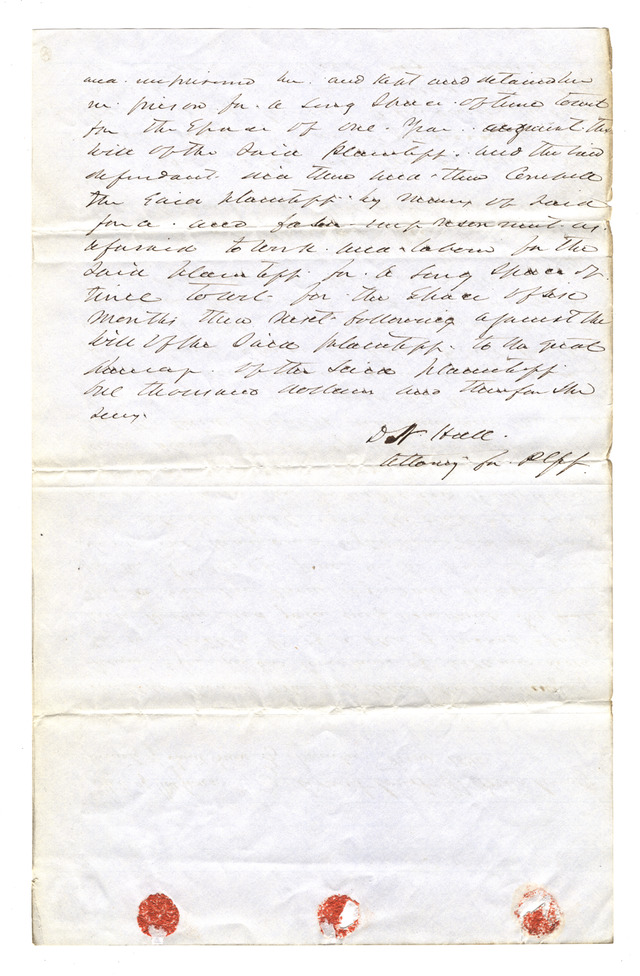 and imprisoned her and kept and detained her
in prison for a long Space of time towit
for the Space of one Year against the
will of the Said Plaintiff and the said
defendant did then and there Compell
the Said plaintiff by means of Said
force and false imprisonment as
aforesaid to work and labour for the
Said plaintiff for a long Space of
time towit for the Space of six
Months then next following against the
will of the Said plaintiff to the great
damage of the Said plaintiff
one thousand dollars and therefore She
Sues
D H Hall
Attorney for Plff